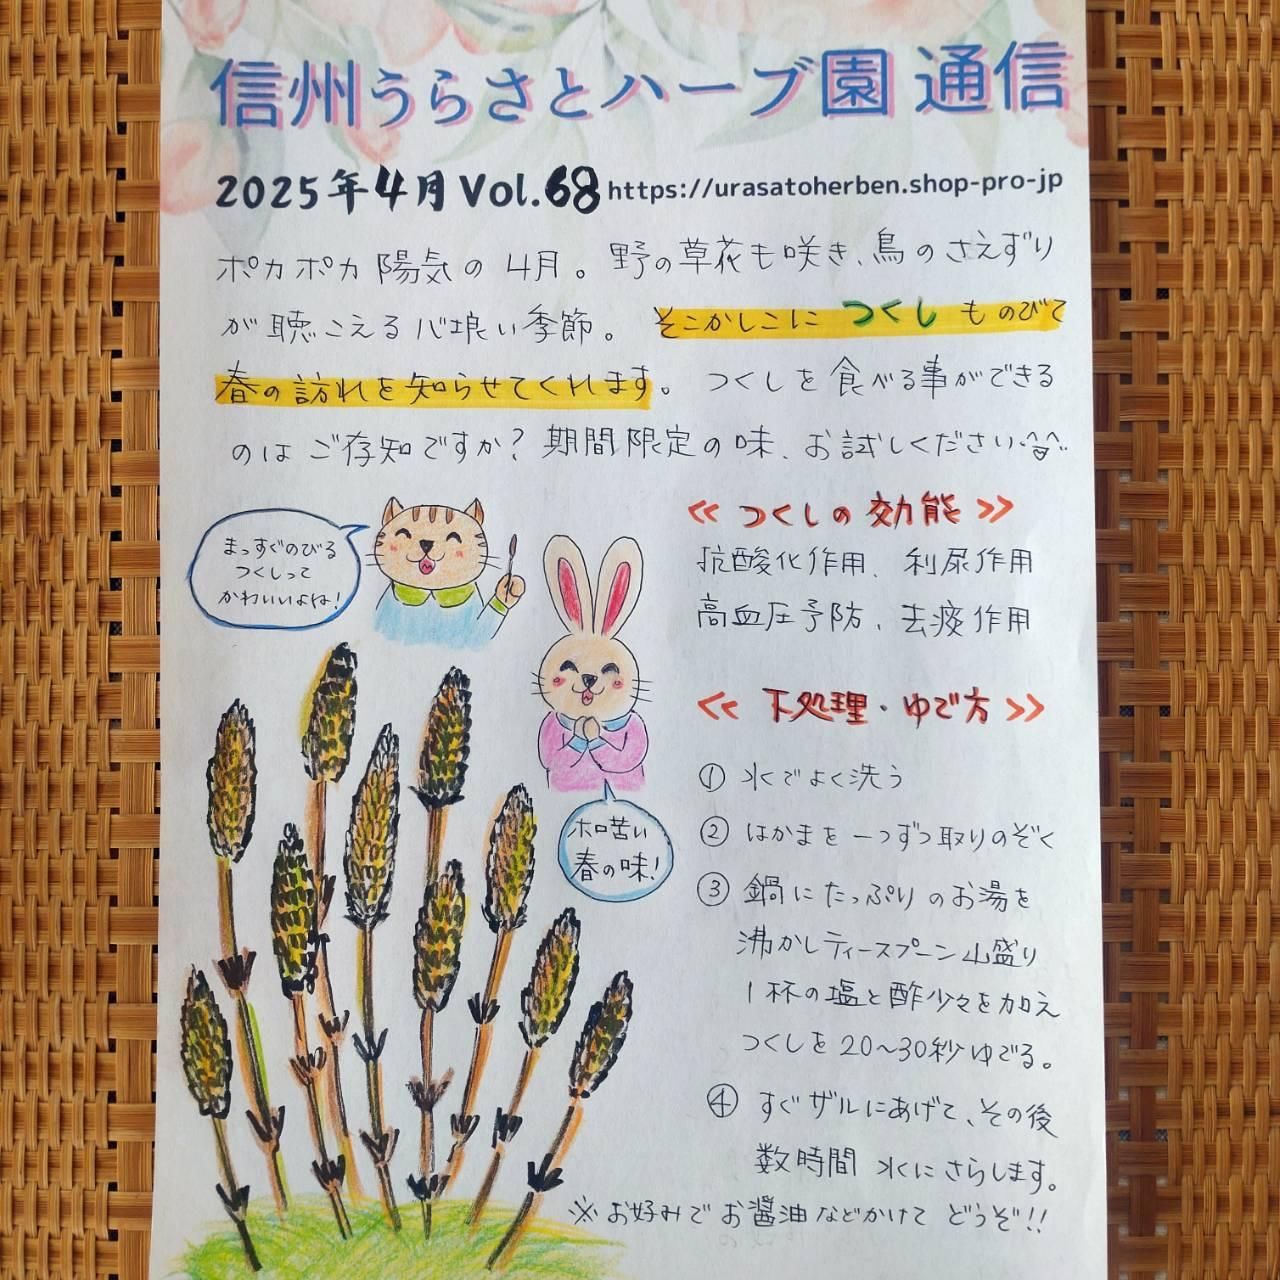 信州うらさとハーブ園 通信
2025年4月 Vol.68 https://urasatoherben.shop-pro-jp
ポカポカ陽気の4月。野の草花も咲き、鳥のさえずり
が聴こえる心地良い季節。そこかしこに つくし ものびて
春の訪れを知らせてくれます。つくしを食べる事ができる
のはご存知ですか?期間限定の味、お試しください
まっすぐのびる
つくしって
かわいいよね!
ホロ苦い
春の味!
≪ つくしの効能 ≫
抗酸化作用、利尿作用
高血圧予防、去痰作用
≪ 下処理・ゆで方 ≫
① 水でよく洗う
② はかまを一つずつ取りのぞく
③ 鍋にたっぷりのお湯を
沸かしティースプーン山盛り
1杯の塩と酢少々を加え
つくしを20〜30秒ゆでる。
④ すぐザルにあげて、その後
数時間 水にさらします。
※お好みでお醤油などかけてどうぞ!!